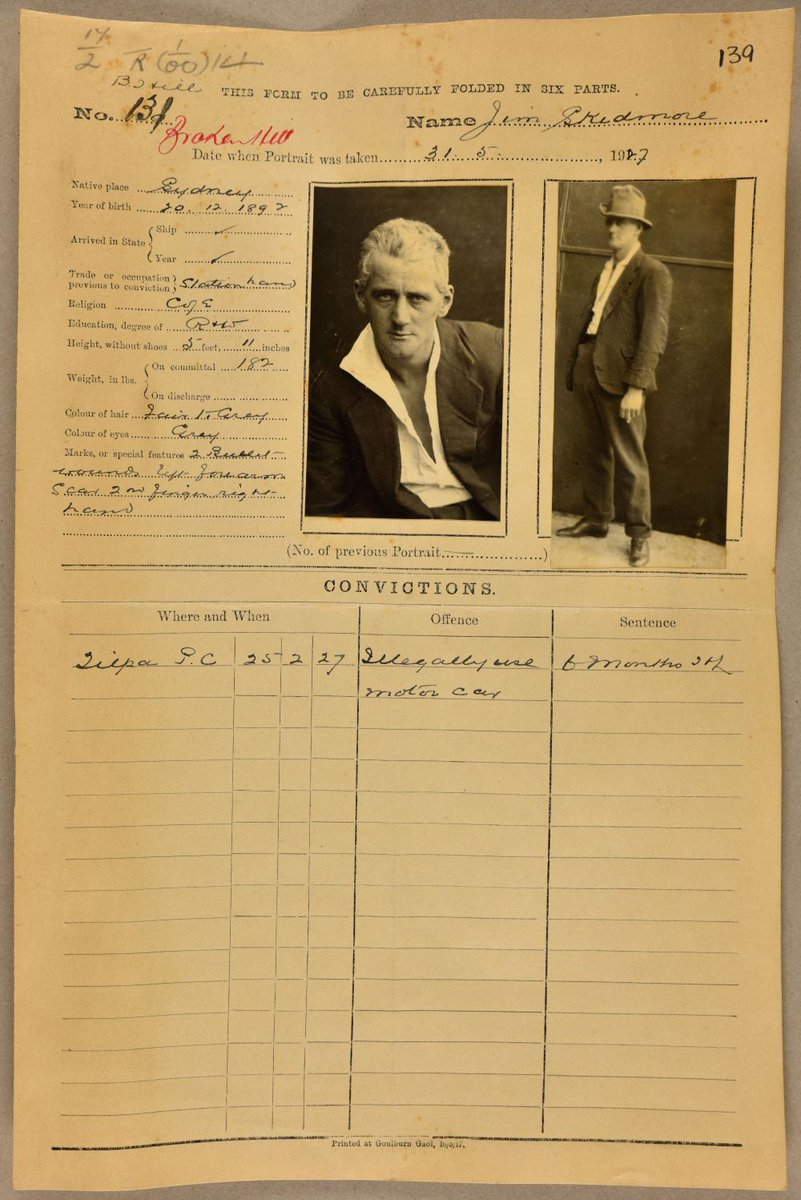 17/2 R (1/00) 14
139
B Hill
THIS FORM TO BE CAREFULLY FOLDED IN SIX PARTS.
No. 131 Name Jim Skidmore
Broken Hill
Date when Portrait was taken 31. 5. , 1927
Native place Sydney
Year of birth 20. 12 1892
Arrived in State { Ship ✓
Year ✓
Trade or occupation previous to conviction } Station hand
Religion C of E
Education, degree of R & W
Height, without shoes 5 feet, 11 inches
Weight, in lbs. { On committal 182
On discharge
Colour of hair Fair to Grey
Colour of eyes Grey
Marks, or special features 2 Bullet
wounds left forearm
Scar 2nd finger right
hand
(No. of previous Portrait )
CONVICTIONS.
Where and When Offence Sentence
Tilpa P.C 25 2 27 Illegally use 6 Months
motor car
Printed at Goulburn Gaol,